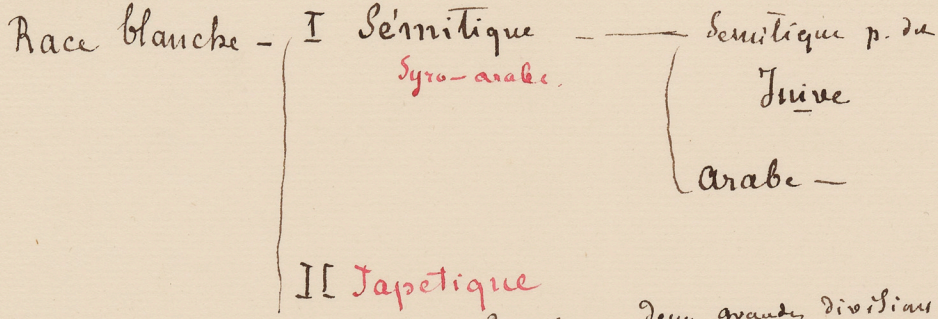 Race blanche - I Sémitique - — Semitique p. du
Syro-arabe.
Juive
arabe —
II Japetique
deux grandes divisions